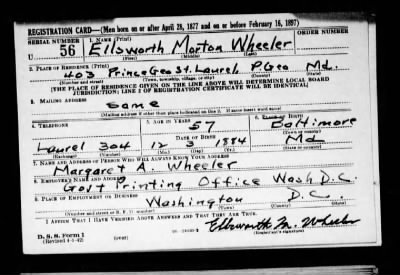 REGISTRATION CARD—(Men born on or after April 28, 1877 and on or before February 16, 1897)
SERIAL NUMBER 1. NAME (Print) ORDER NUMBER
U 56 Ellsworth Morton Wheeler
(First) (Middle) (Last)
2. PLACE OF RESIDENCE (Print)
403 Prince Geo St. Laurel P. Geo Md.
(Number and street) (Town, township, village, or city) (County) (State)
[THE PLACE OF RESIDENCE GIVEN ON THE LINE ABOVE WILL DETERMINE LOCAL BOARD
JURISDICTION; LINE 2 OF REGISTRATION CERTIFICATE WILL BE IDENTICAL]
3. MAILING ADDRESS
Same
[Mailing address if other than place indicated on line 2. If same insert word same]
4. TELEPHONE 5. AGE IN YEARS 6. PLACE OF BIRTH
57 Baltimore
DATE OF BIRTH (Town or county)
Laurel 304 12 3 1884 Md
(Exchange) (Number) (Mo.) (Day) (Yr.) (State or country)
7. NAME AND ADDRESS OF PERSON WHO WILL ALWAYS KNOW YOUR ADDRESS
Margaret A. Wheeler
8. EMPLOYER'S NAME AND ADDRESS
Govt Printing Office Wash D.C.
9. PLACE OF EMPLOYMENT OR BUSINESS
Washington D.C.
(Number and street or R. F. D. number) (Town) (County) (State)
I AFFIRM THAT I HAVE VERIFIED ABOVE ANSWERS AND THAT THEY ARE TRUE.
D. S. S. Form 1 Ellsworth M. Wheeler
(Revised 4-1-42) (over) (Registrant's signature)